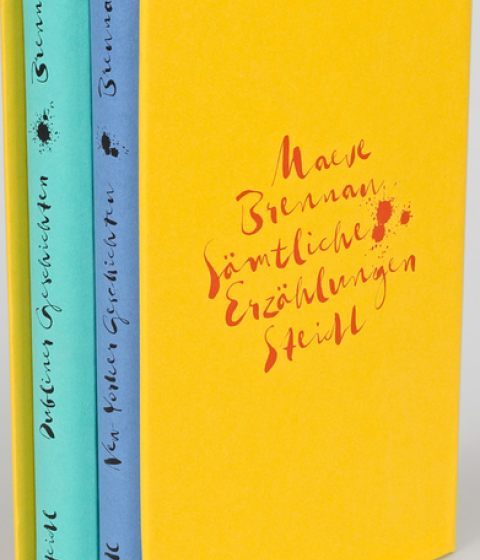 Maeve
Brennan
Sämtliche
Erzählungen
Steidl
Dubliner Geschichten
Brenna
New Yorker Geschichten
Brenna